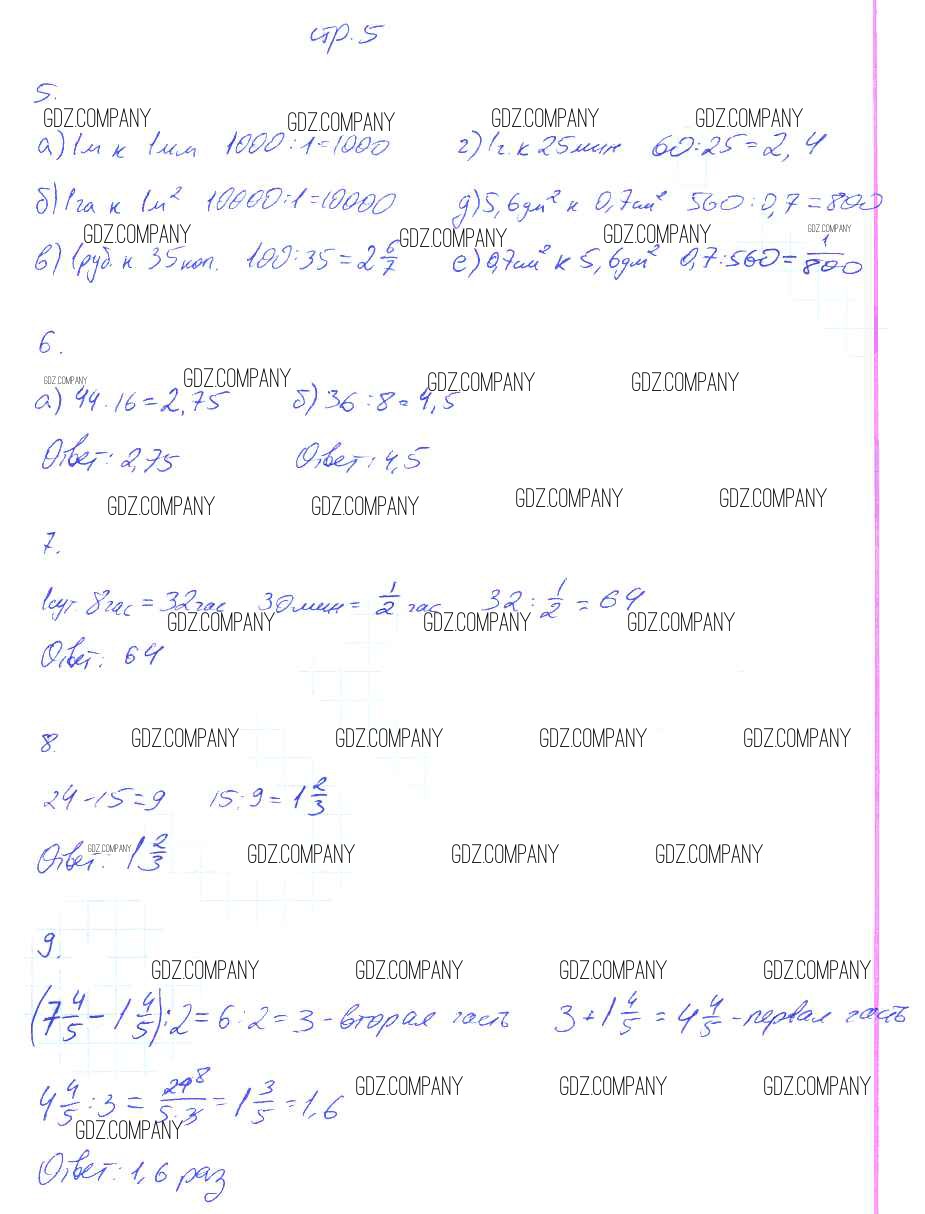 стр. 5
5.
GDZ.COMPANY GDZ.COMPANY GDZ.COMPANY GDZ.COMPANY
а) 1м к 1мм 1000 : 1 = 1000 г) 1ч. к 25 мин 60 : 25 = 2,4
б) 1га к 1м² 10000 : 1 = 10000 д) 5,6дм² к 0,7см² 560 : 0,7 = 800
GDZ.COMPANY GDZ.COMPANY GDZ.COMPANY GDZ.COMPANY
в) 1руб. к 35коп. 100 : 35 = 2 6/7 е) 0,7см² к 5,6дм² 0,7 : 560 = 1/800
6.
GDZ.COMPANY GDZ.COMPANY GDZ.COMPANY GDZ.COMPANY
а) 44 : 16 = 2,75 б) 36 : 8 = 4,5
Ответ: 2,75 Ответ: 4,5
GDZ.COMPANY GDZ.COMPANY GDZ.COMPANY GDZ.COMPANY
7.
1сут. 8час = 32час 30мин = 1/2 час 32 : 1/2 = 64
GDZ.COMPANY GDZ.COMPANY GDZ.COMPANY
Ответ: 64
8. GDZ.COMPANY GDZ.COMPANY GDZ.COMPANY GDZ.COMPANY
24 - 15 = 9 15 : 9 = 1 2/3
Ответ: 1 2/3 GDZ.COMPANY GDZ.COMPANY GDZ.COMPANY GDZ.COMPANY
9.
GDZ.COMPANY GDZ.COMPANY GDZ.COMPANY GDZ.COMPANY
(7 4/5 - 1 4/5) : 2 = 6 : 2 = 3 - вторая часть 3 + 1 4/5 = 4 4/5 - первая часть
4 4/5 : 3 = 24 8/5 · 3 = 1 3/5 = 1,6 GDZ.COMPANY GDZ.COMPANY GDZ.COMPANY
GDZ.COMPANY
Ответ: 1,6 раз